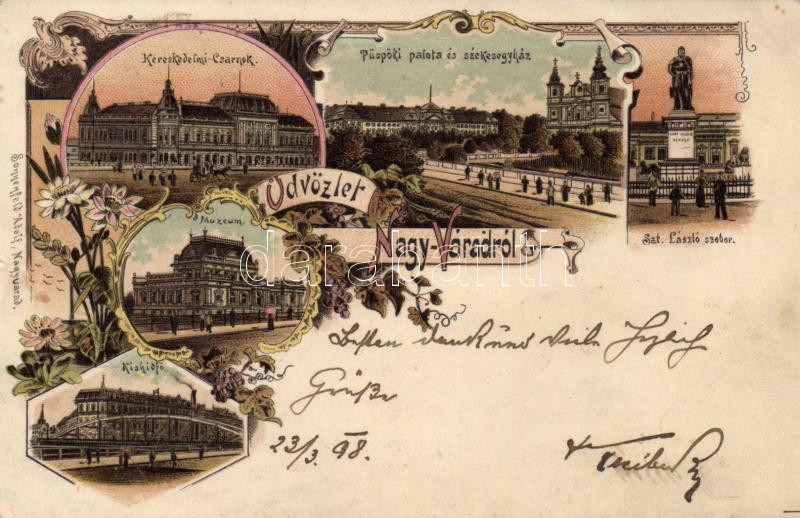 Kereskedelmi-Csarnok.
Püspöki palota és székesegyház
Szt. László szobor.
Üdvözlet
Nagy-Váradról
Muzeum.
Kishidfő
Sonnenfeld Adolf, Nagyvárad.
darabanth.com
Besten Dank und viele
Grüße
23/3. 98.